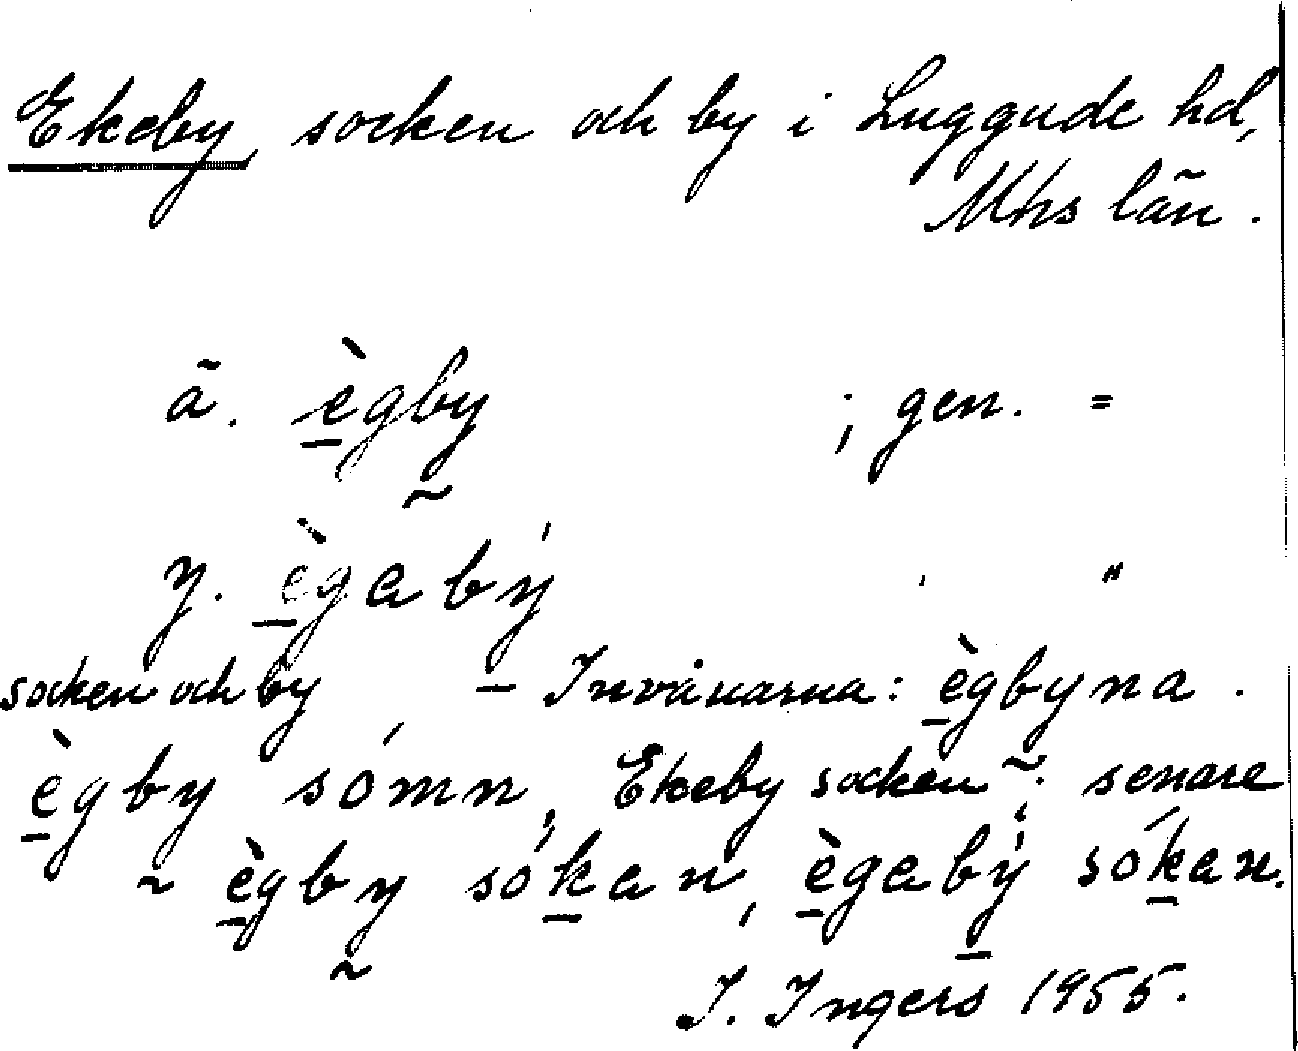 Ekeby, socken och by i Luggude hd,
Mhs län.
ä. ègby ; gen. =
y. ègabý "
socken och by – Invånarna: ègbyna.
ègby sómn, Ekeby socken; senare
ègby sókan, ègabý sókan.
I. Ingers 1955.